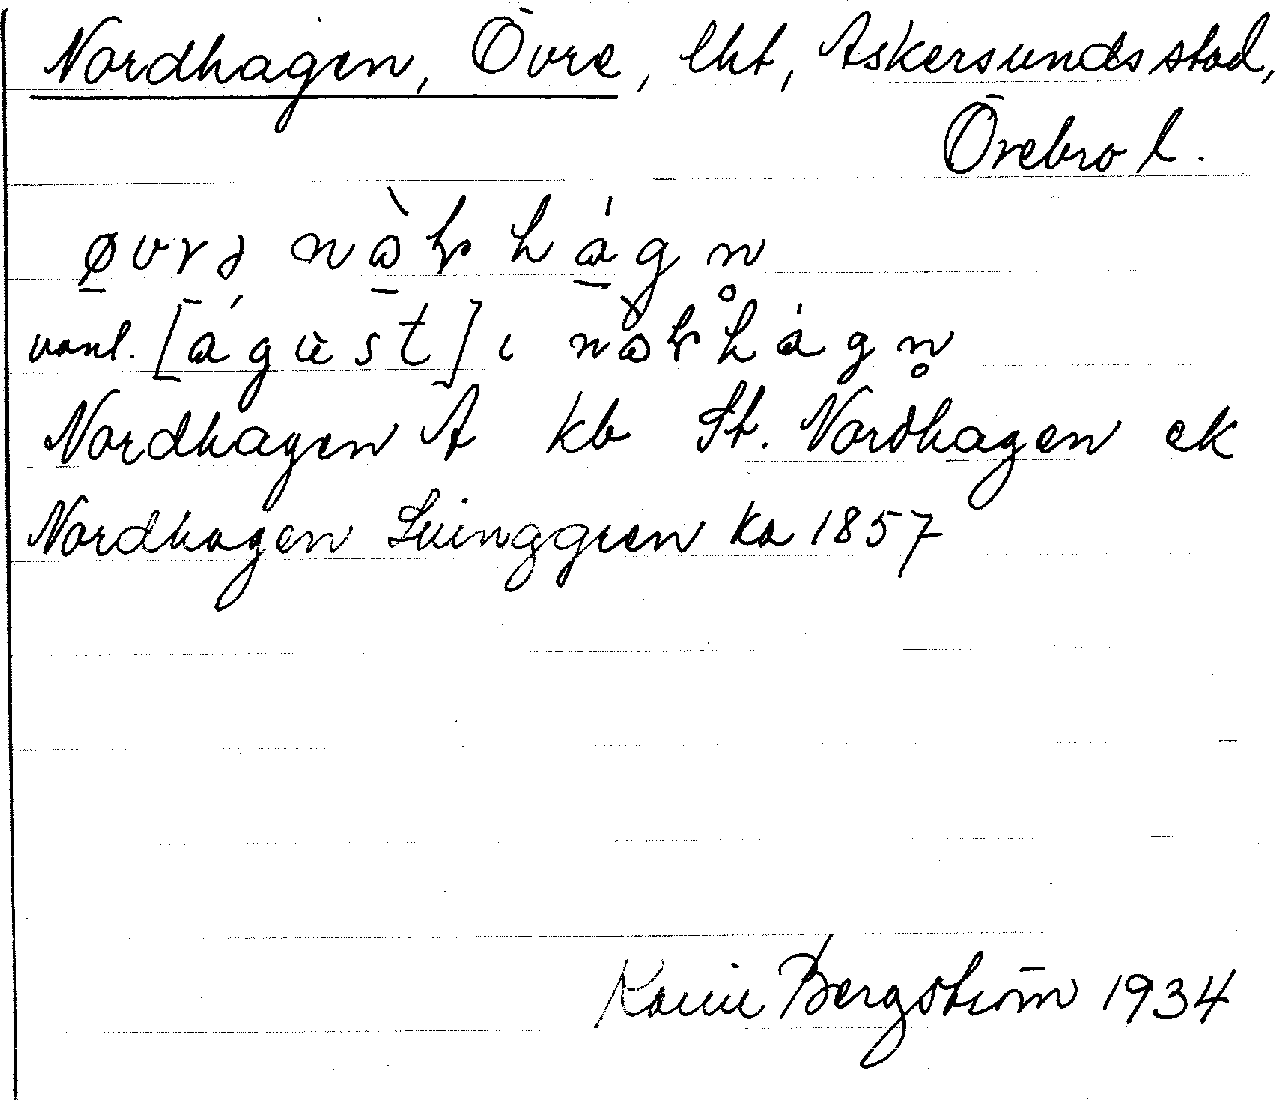 Nordhagen, Övre, lht, Askersunds stad,
Örebro l.
vanl. [ágùst] ι
Nordhagen A kb St. Nordhagen ek
Nordhagen Svinggren ka 1857
Karin Bergström 1934